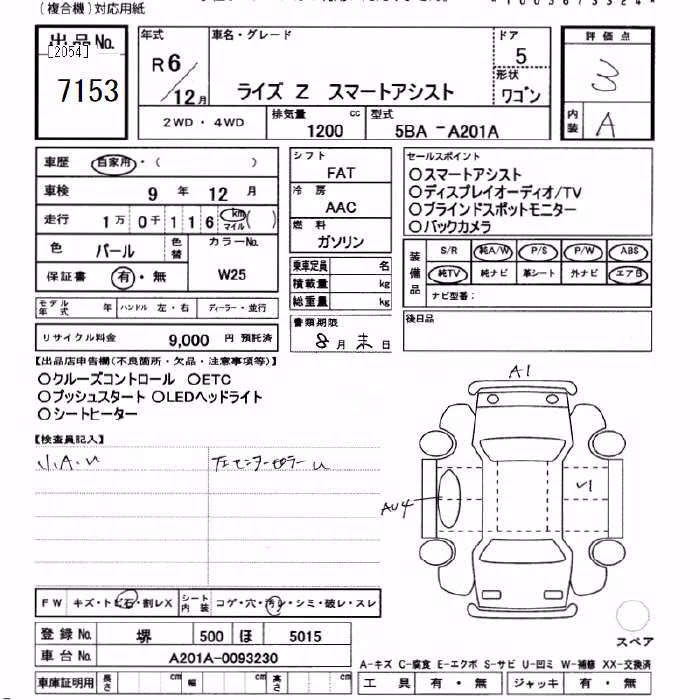 (複合機)対応用紙
出品No.
[2054]
7153
年式
R6
12月
車名・グレード
ライズ Z スマートアシスト
ドア
5
形状
ワゴン
評価点
3
内装
A
2WD・4WD
排気量
1200 cc
型式
5BA -A201A
車歴 自家用・( )
車検 9 年 12 月
走行 1万 0千 1 1 6 km マイル ( )
色 パール 色替
カラーNo.
W25
保証書 有・無
モデル年式 年 ハンドル 左・右 ディーラー・並行
リサイクル料金 9,000 円 預託済
シフト
FAT
冷房
AAC
燃料
ガソリン
乗車定員 名
積載量 kg
総重量 kg
書類期限
8月末日
セールスポイント
○スマートアシスト
○ディスプレイオーディオ/TV
○ブラインドスポットモニター
○バックカメラ
装備品
S/R 純A/W P/S P/W ABS
純TV 純ナビ 革シート 外ナビ エアB
ナビ型番:
後日品
【出品店申告欄(不良箇所・欠品・注意事項等)】
○クルーズコントロール ○ETC
○プッシュスタート ○LEDヘッドライト
○シートヒーター
【検査員記入】
左センターピラーU
A1
AU4
FW キズ・トビ石・割レX
シート内装 コゲ・穴・汚レ・シミ・破レ・スレ
登録No. 堺 500 ほ 5015
車台No. A201A-0093230
車庫証明用 長さ cm 幅 cm 高さ cm
スペア
A-キズ C-腐食 E-エクボ S-サビ U-凹ミ W-補修 XX-交換済
工具 有・無 ジャッキ 有・無